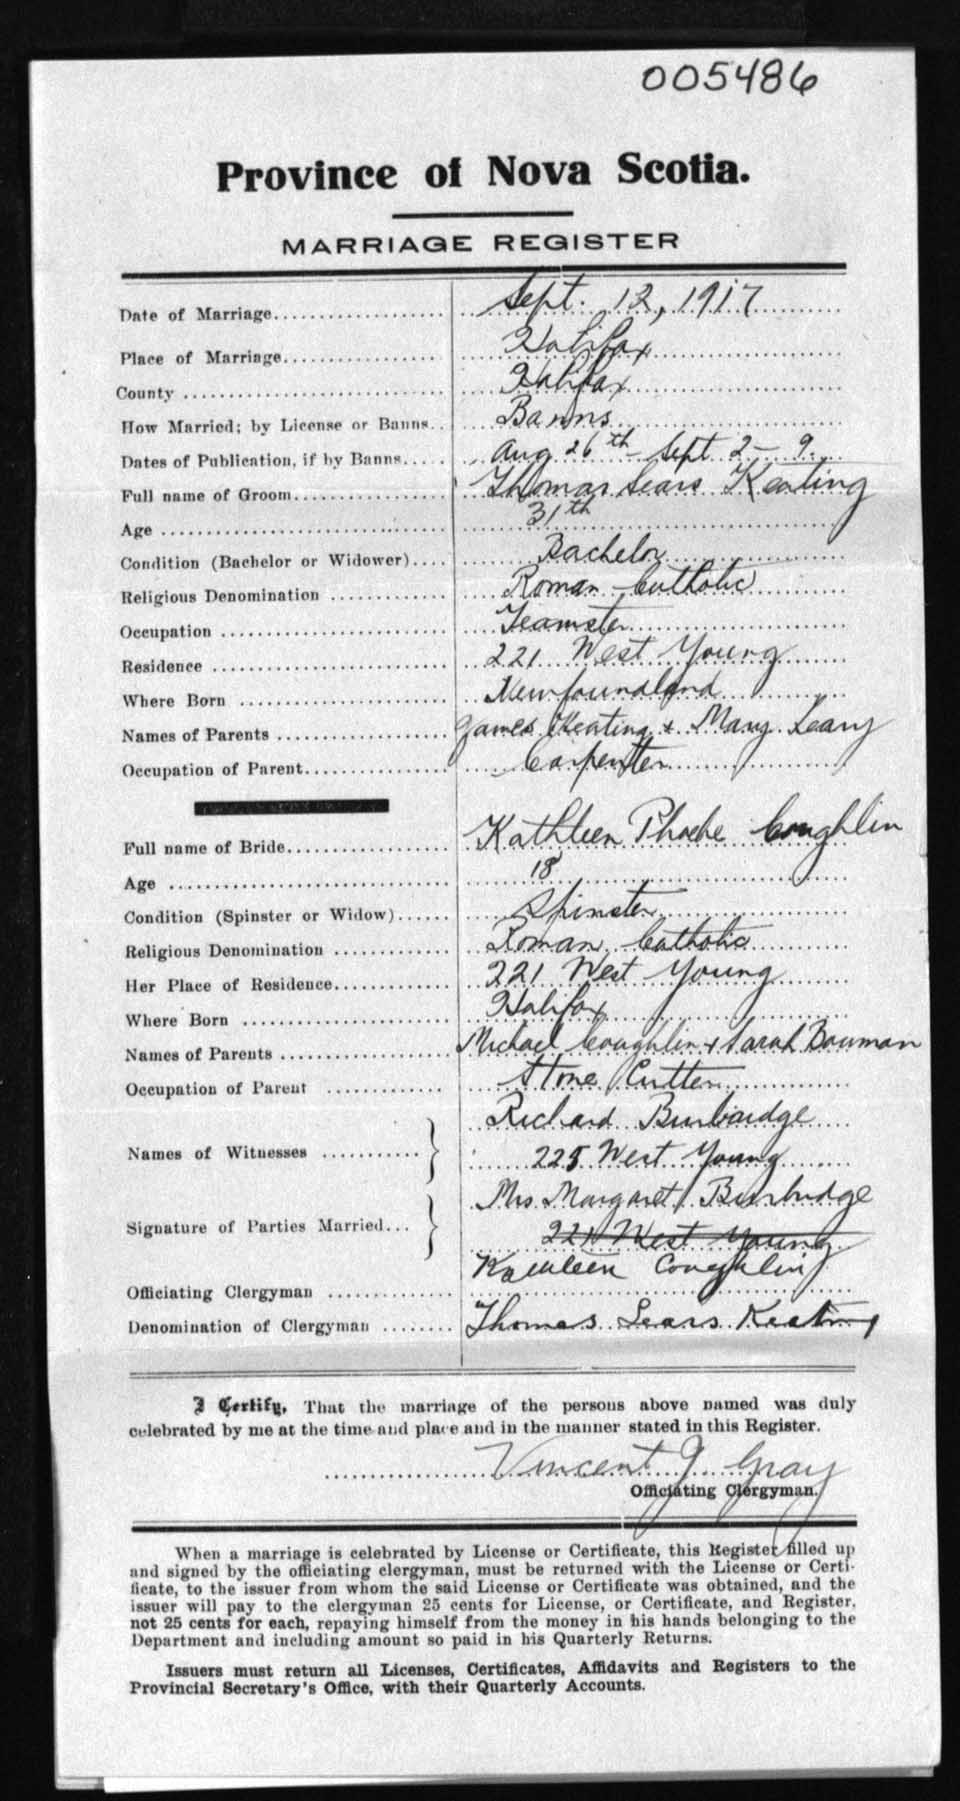 005486
Province of Nova Scotia.
MARRIAGE REGISTER
Date of Marriage Sept. 12, 1917
Place of Marriage Halifax
County Halifax
How Married; by License or Banns Banns
Dates of Publication, if by Banns Aug 26th - Sept 2 - 9.
Full name of Groom Thomas Sears Keating
Age 31th
Condition (Bachelor or Widower) Bachelor
Religious Denomination Roman Catholic
Occupation Teamster
Residence 221 West Young
Where Born Newfoundland
Names of Parents James Keating + Mary Leary
Occupation of Parent Carpenter
Full name of Bride Kathleen Phoebe Coughlin
Age 18
Condition (Spinster or Widow) Spinster
Religious Denomination Roman Catholic
Her Place of Residence 221 West Young
Where Born Halifax
Names of Parents Michael Coughlin + Sarah Bowman
Occupation of Parent Stone Cutter
Richard Burbridge
Names of Witnesses 225 West Young
Mrs. Margaret Burbridge
Signature of Parties Married 221 West Young
Kathleen Coughlin
Officiating Clergyman
Denomination of Clergyman Thomas Sears Keating
I Certify, That the marriage of the persons above named was duly
celebrated by me at the time and place and in the manner stated in this Register.
Vincent J. Gray
Officiating Clergyman.
When a marriage is celebrated by License or Certificate, this Register filled up
and signed by the officiating clergyman, must be returned with the License or Certi-
ficate, to the issuer from whom the said License or Certificate was obtained, and the
issuer will pay to the clergyman 25 cents for License, or Certificate, and Register,
not 25 cents for each, repaying himself from the money in his hands belonging to the
Department and including amount so paid in his Quarterly Returns.
Issuers must return all Licenses, Certificates, Affidavits and Registers to the
Provincial Secretary's Office, with their Quarterly Accounts.